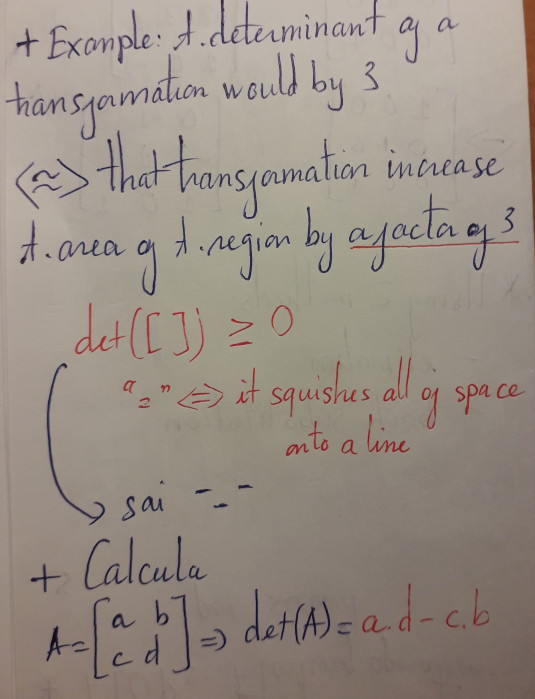 + Example: t.determinant of a
transformation would by 3
<≈> that transformation increase
t.area of t.region by a factor of 3
det([ ]) ≥ 0
"=" <=> it squishes all of space
onto a line
sai -_-
+ Calcula
A=[a b
c d] => det(A)= a.d - c.b